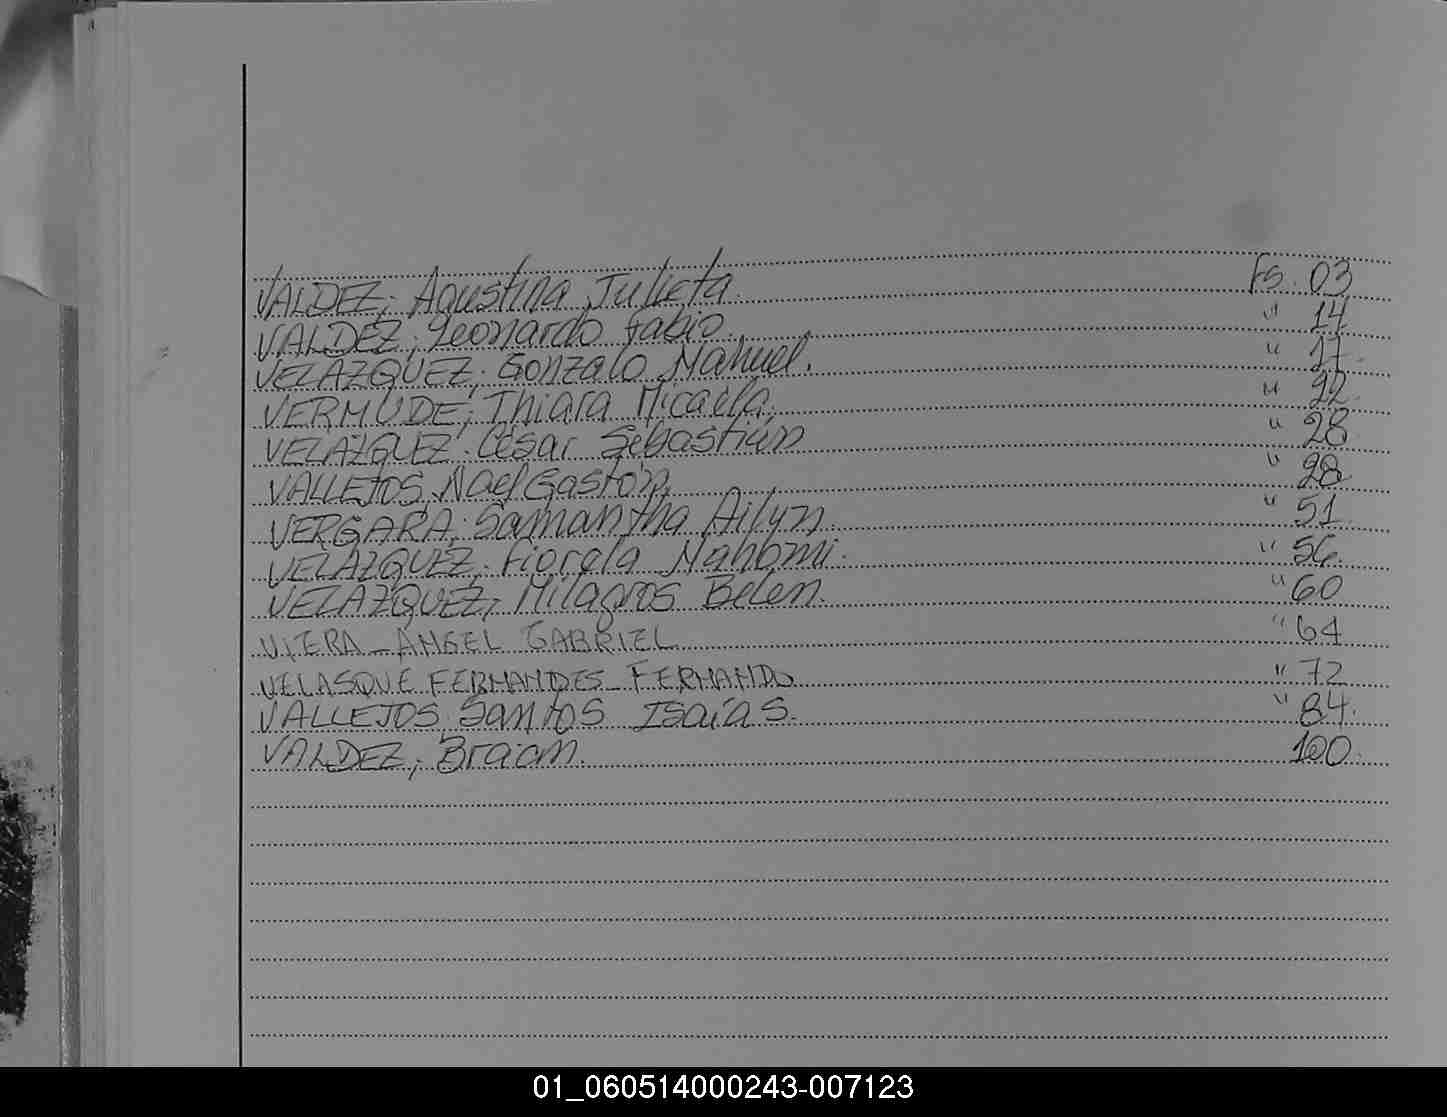 VALDEZ; Agustina Julieta. Fs. 03
VALDEZ; Leonardo Fabio. " 14
VELAZQUEZ; Gonzalo Nahuel. " 17.
VERMUDE; Thiara Micaela. " 22.
VELAZQUEZ. César Sebastián " 28
VALLEJOS, Nael Gastón. " 28
VERGARA; Samantha Ailyn. " 51.
VELAZQUEZ, Fiorela Nahomi. " 56.
VELAZQUEZ, Milagros Belen. " 60
VIERA - ANGEL GABRIEL " 64
VELASQUE FERNANDES - FERNANDO " 72
VALLEJOS, Santos Isaías. " 84.
VALDEZ; Braom. 100.
01_060514000243-007123